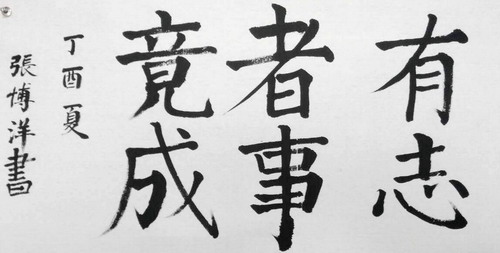 有志
者事
竟成
丁酉夏
張博洋書